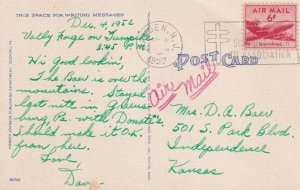 THIS SPACE FOR WRITING MESSAGES
Dec. 4, 1952
Valley Forge on Turnpike
3:45 P.M.
Hi Good lookin',
The Baer is over the
mountains. Stayed
last nite in Greens-
burg, Pa. with Donato's.
Should make it O.K.
from here.
Love,
Dave
42755
DEN, N.J.
1952
AIR MAIL
6¢
ASSOCIATION
POST CARD
Air Mail
Mrs. D. A. Baer
501 S. Park Blvd.
Independence
Kansas